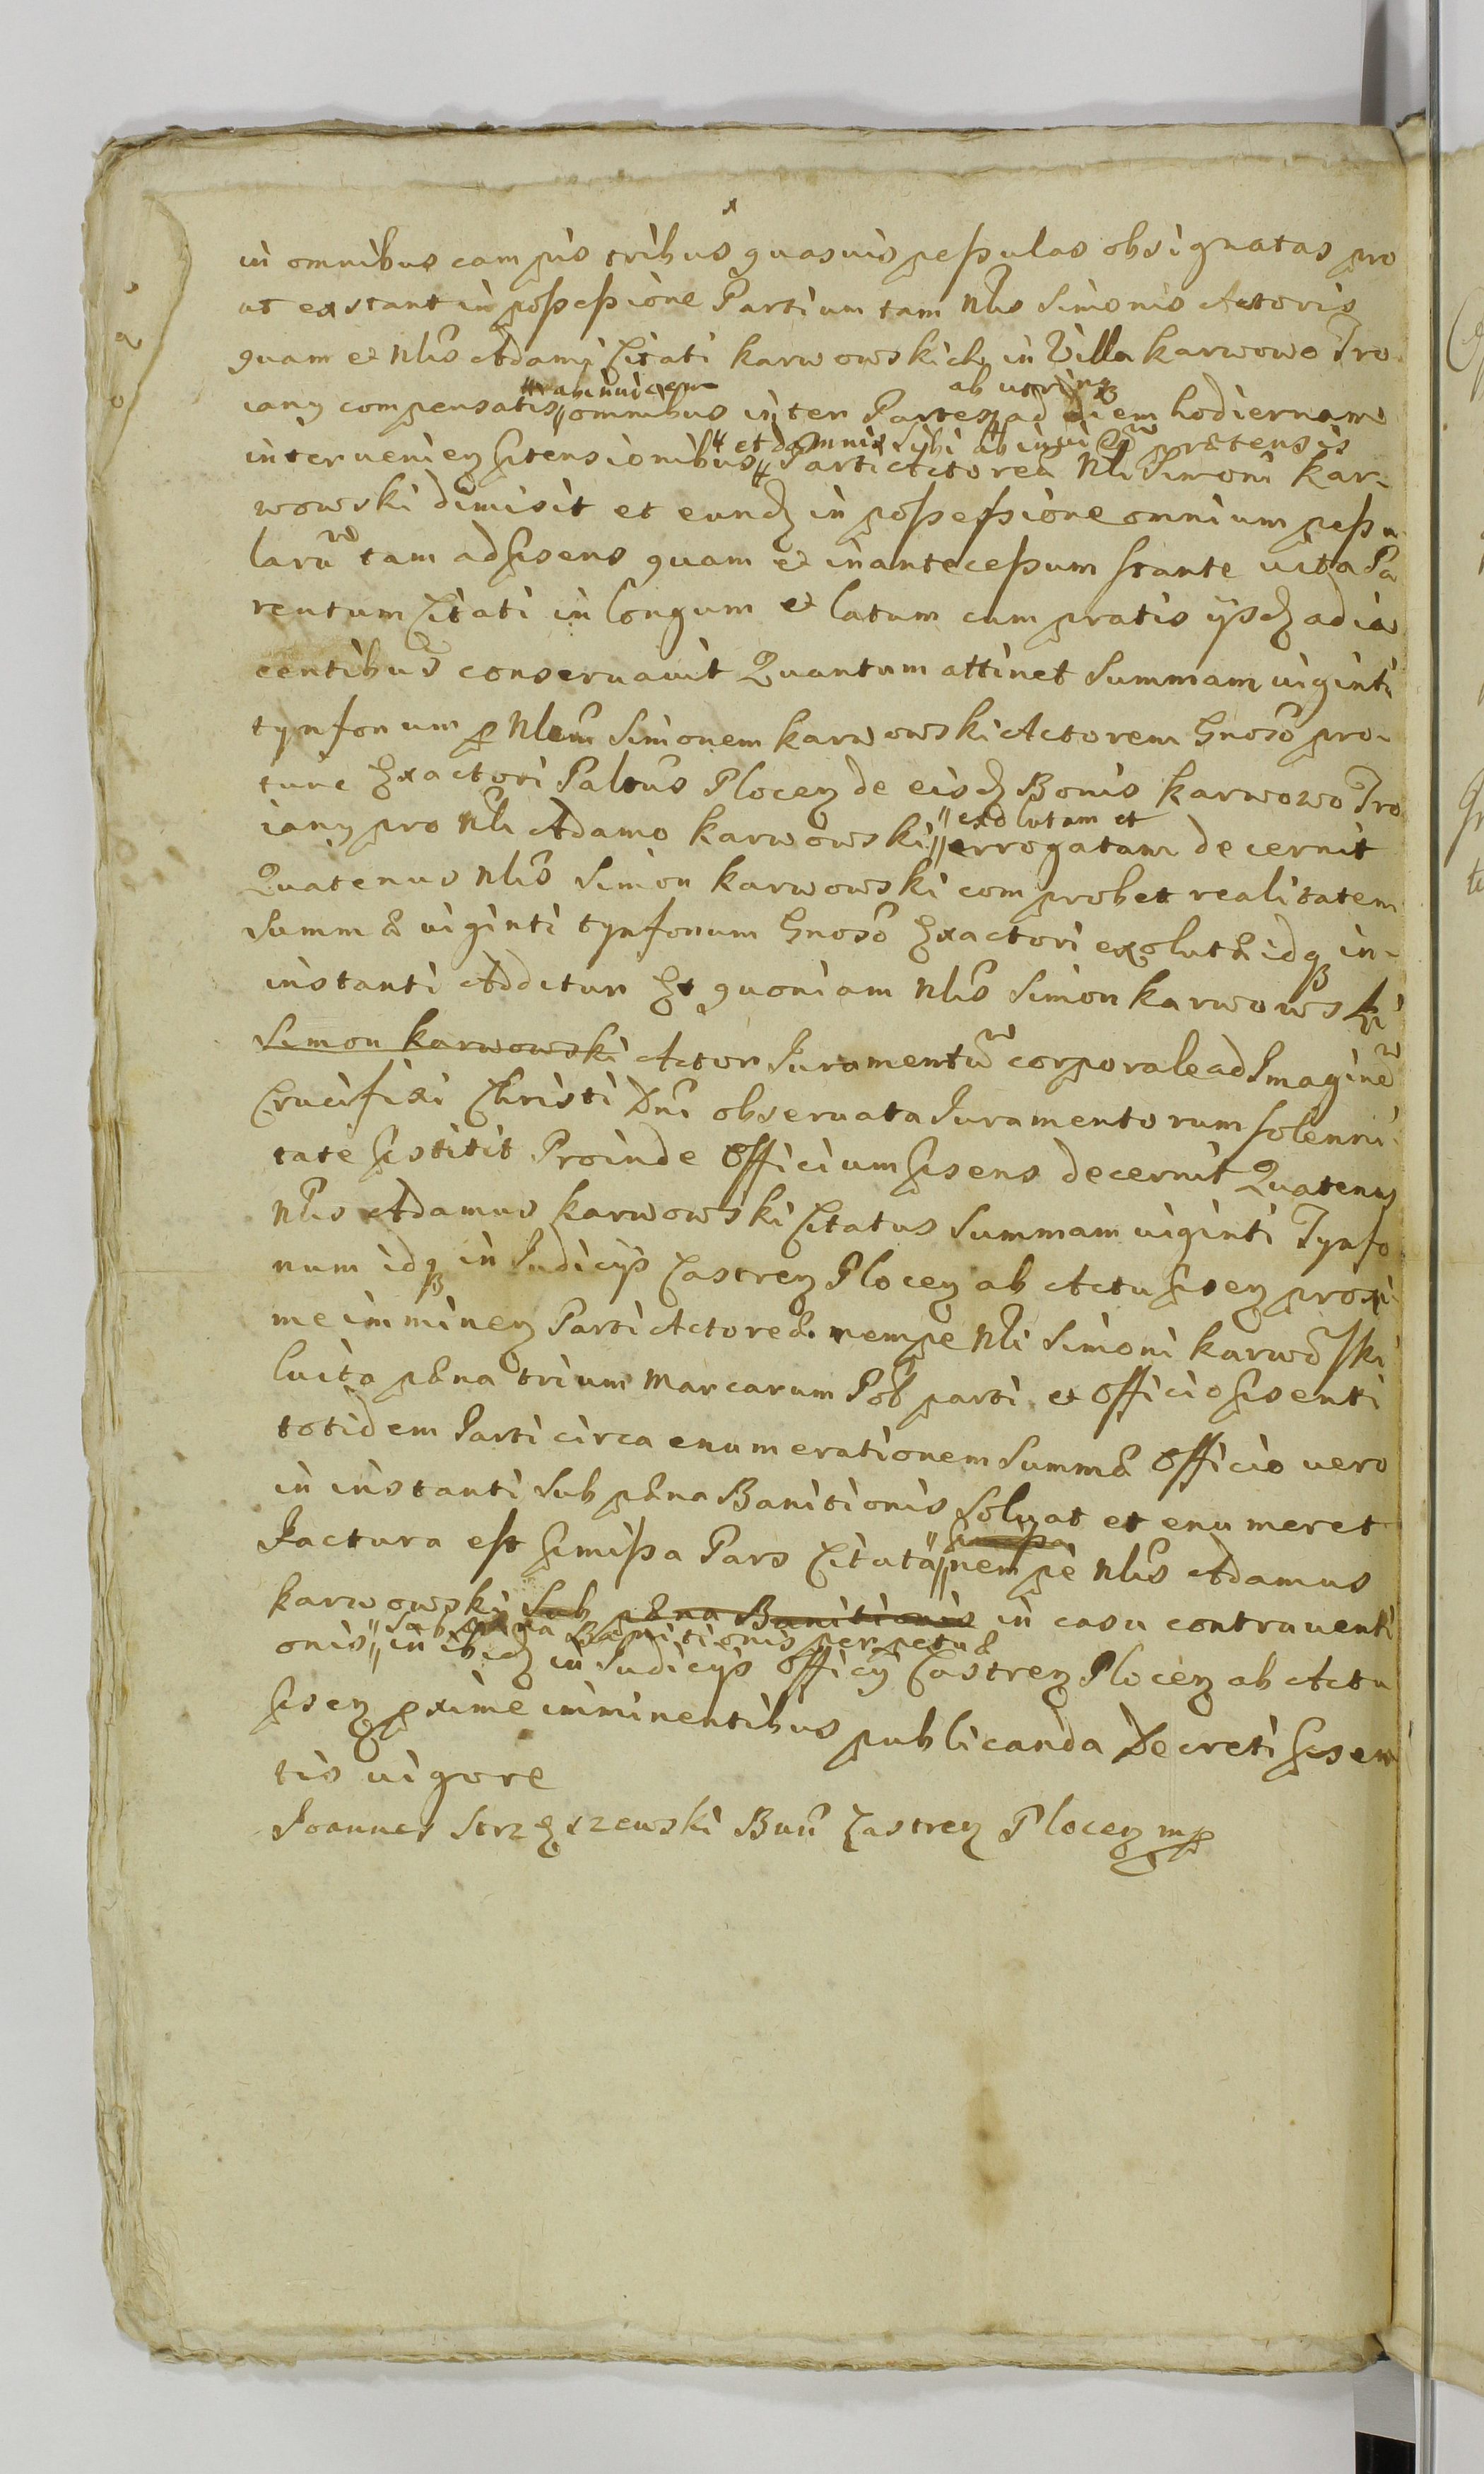 in omnibus campis tribus quasuis peßulas obsignatas pro
ut exstant in poßeßione Partium tam Nlis Simonis Actoris
quam et Nlis Adami Citati Karwowskich in Villa Karwowo Tro
iany compensatis omnibus inter Partes ab utrinq ad diem hodiernam
interuenien Prtensionibus et damnis sibi ab inuicem prætensis Parti Actoreæ Nli Simoni Kar-
wowski dimisit et eund in poßeßione omnium peßu
larū tam ad Prsens quam et in anteceßum stante uita Pa
rentum Citati in longum et latum cum pratis ijsd adia
centibus conseruauit Quantum attinet Summam uiginti
tynfonum p Nlem Simonem Karwowski Actorem Gnoso pro
tunc Exactori Paltus Plocen de eisd Bonis Karwowo Tro
iany pro Nli Adamo Karwowski exolutam et errogatam decernit
Quatenus Nlis Simon Karwowski comprobet realitatem
Summæ uiginti tynfonum Gnoso Exactori exolutæ idq in-
instanti Additur Et quoniam Nlis Simon Karwowski
Simon Karwowski Actor Juramentū corporale ad Imaginē
Crucifixi Christi Dni obseruata Juramentorum solenni
tate Prstitit Proinde Officium Prsens decernit Quatenus
Nlis Adamus Karwowski Citatus Summam uiginti Tynfo
num idq in Judicijs Castren Plocen ab Actu Prsen proxi
me imminen Parti Actoreæ nempe Nli Simoni Karwowski
luita pæna trium Marcarum Pol parti et Officio Prsenti
totidem Parti circa enumerationem Summæ Officio uero
in instanti Sub pæna Banitionis soluat et enumeret
Factura est Prmißa Pars Citata nempe Nlis Adamus
Karwowski Sub pæna Banitionis in casu contrauenti
onis Sub pæna Banitionis perpetuæ in ibid in Judicijs Officij Castren Plocen ab Actu
Prsen pxime imminentibus publicanda Decreti Prsen
tis uigore
Joannes Strzeszewski Bur Castren Plocen mp